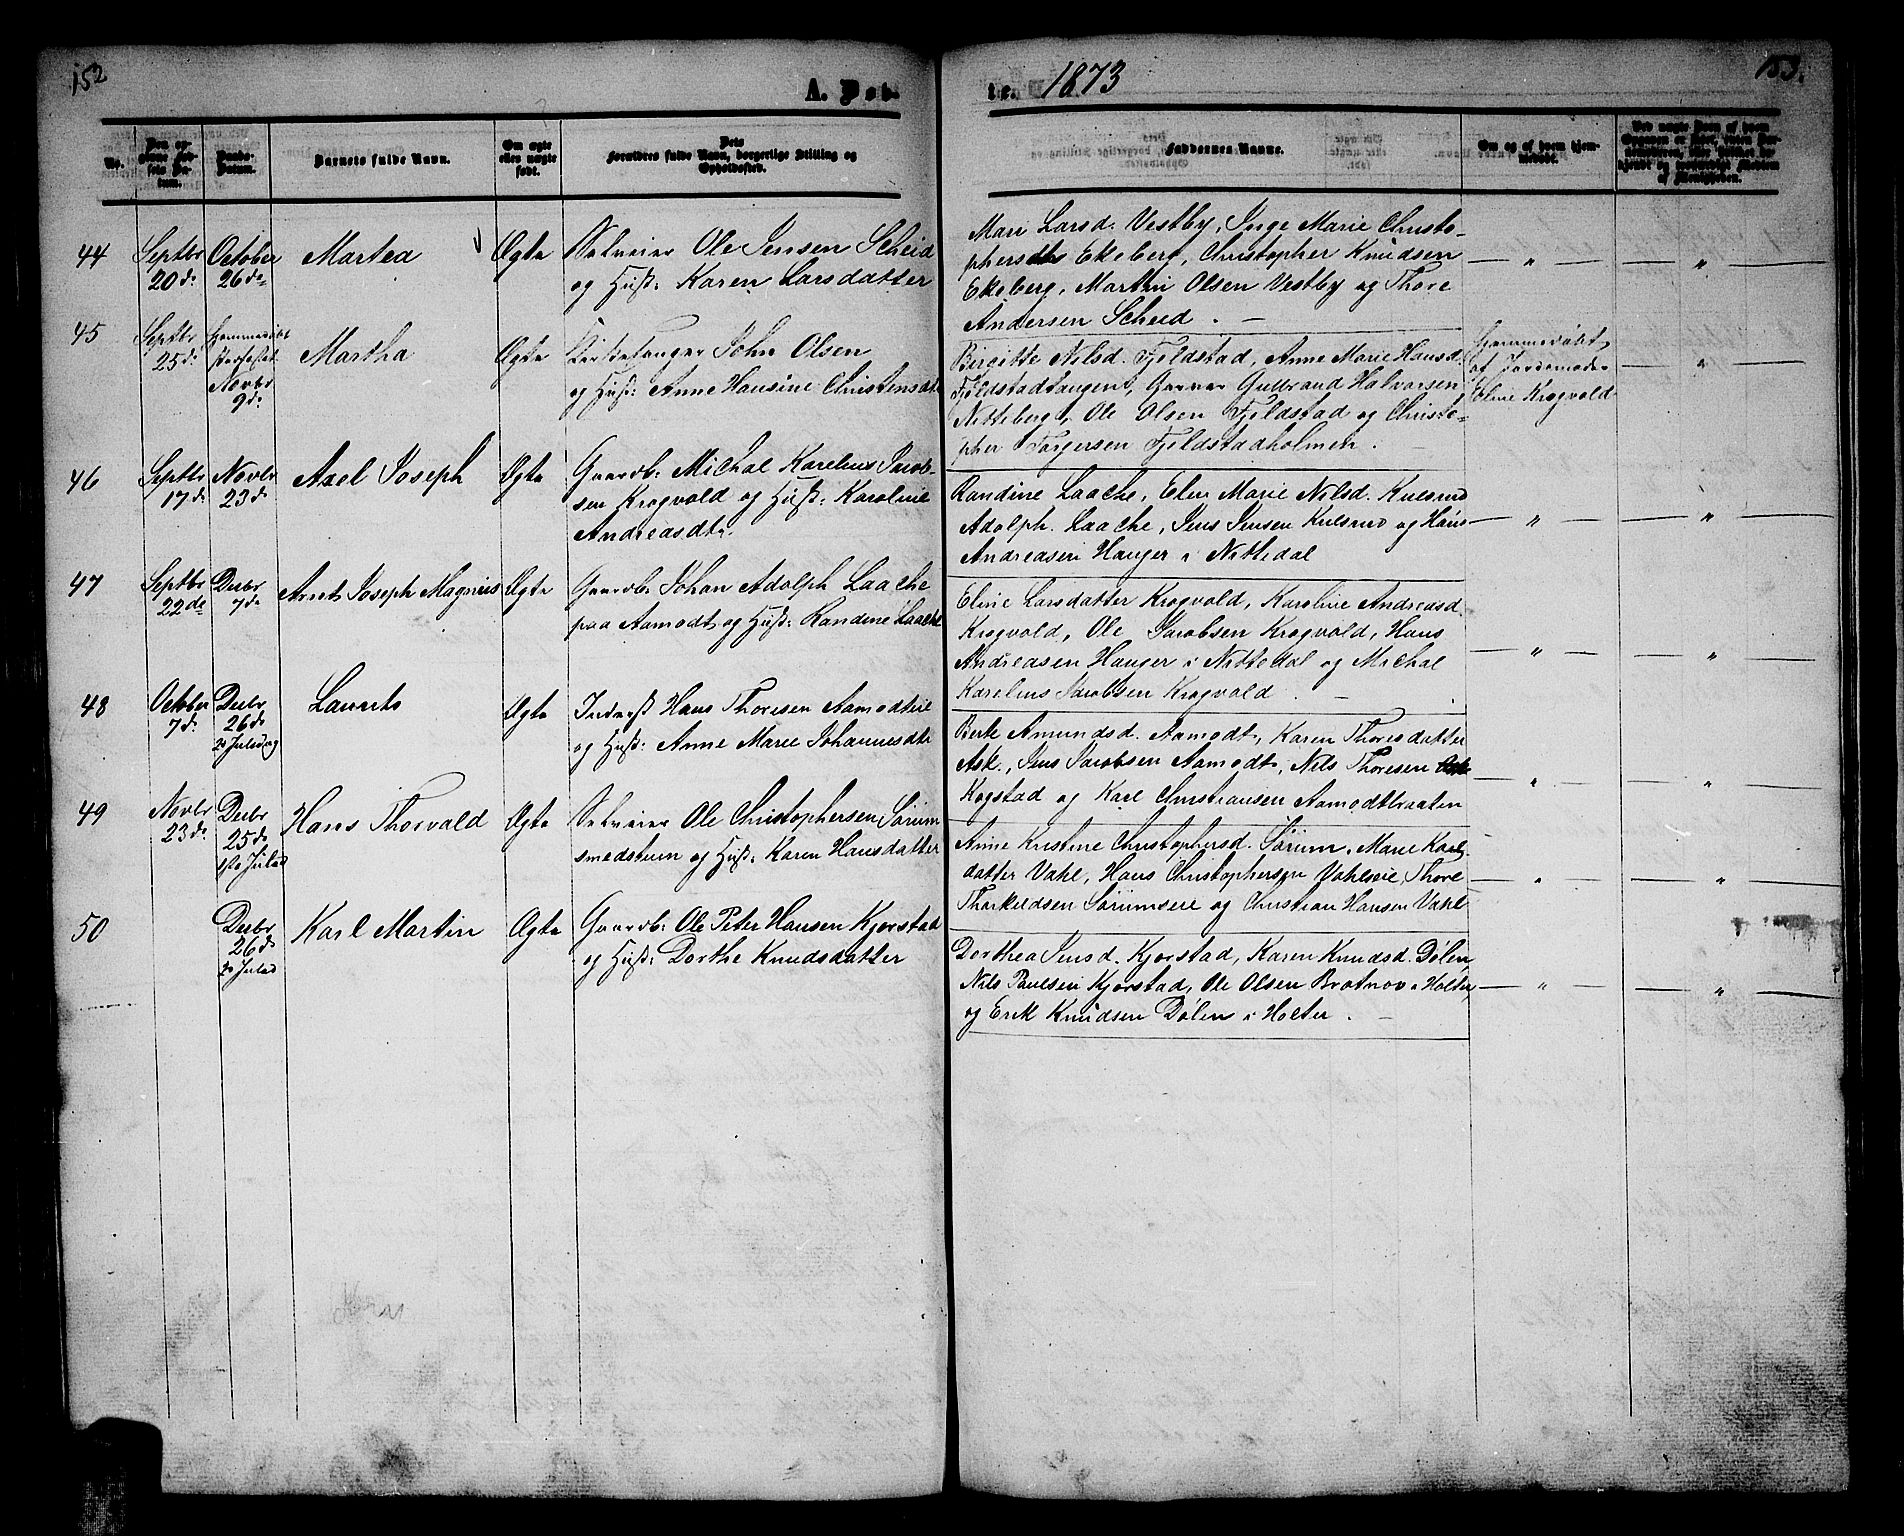 152
A. Døb-
te. 1873
153.
No.
Barnets fulde Navn.
Om ægte
eller uægte
født.
Forældres fulde Navn, borgerlige Stilling og
Opholdssted.
Faddernes Navne.
Om og af hvem hjem-
medøbt.
44
Septbr
20de
October
26de
Martea
Ægte
Selveier Ole Jensen Scheid
og Hust: Karen Larsdatter
Mari Larsd. Vestby, Inge Marie Christo-
phersdtr Ekeberg, Christopher Knudsen
Ekeberg, Martin Olsen Vestby og Thore
Andersen Scheid. —
— " —
— " —
45
Septbr
25de
Hjemmedøbt
Novbr
9de
Martha
Ægte
Kirkesanger John Olsen
og Hust: Anne Hansine Christensdtr
Birgitte Nilsd. Fjeldstad, Anne Marie Hansd.
Fjeldstadtangen, Garver Gulbrand Halvorsen
Nitteberg, Ole Olsen Fjeldstad og Christo-
pher Torgersen Fjeldstadholmen.
Hjemmedøbt
af Jordemoder
Eline Krogvold
— " —
46
Septbr
17de
Novbr
23de
Axel Joseph
Ægte
Gaardb: Michal Karelius Jacob-
sen Krogvold og Hust: Karoline
Andreasdtr.
Randine Laache, Elen Marie Nilsd. Kulsrud
Adolph Laache, Jens Jensen Kulsrud og Hans
Andreasen Hauger i Nittedal
— " —
— " —
47
Septbr
22de
Decbr
7de
Arnt Joseph Magnus
Ægte
Gaardb: Johan Adolph Laache
paa Aamodt og Hust: Randine Laache
Eline Larsdatter Krogvold, Karoline Andreasd.
Krogvold, Ole Jacobsen Krogvold, Hans
Andreasen Hauger i Nittedal og Michal
Karelius Jacobsen Krogvold. —
— " —
— " —
48
October
7de
Decbr
26de
2n Juledag
Laurits
Ægte
Inderst Hans Thoresen Aamodteie
og Hust: Anne Marie Johannesdtr
Berte Amundsd. Aamodt, Karen Thoresdatter
Ask, Jens Jacobsen Aamodt, Nils Thoresen
Kogstad og Karl Christiansen Aamodtbraaten
— " —
— " —
49
Novbr
23de
Decbr
25de
Hans Thorvald
Ægte
Selveier Ole Christophersen Sørum
smedstuen og Hust: Karen Hansdatter
Anne Kristine Christophersd. Sørum, Marie Karls-
datter Vahl, Hans Christophersen Vahlseie, Thore
Thorkildsen Sørumseie og Christian Hansen Vahl
— " —
— " —
50
Decbr
26de
2n Juled
Karl Martin
Ægte
Gaardb: Ole Peter Hansen Kjorstad
og Hust: Dorthe Knudsdatter
Dorthea Jensd. Kjorstad, Karen Knudsd. Dølen,
Nils Paulsen Kjorstad, Ole Olsen Bratnov i Holter,
og Erik Knudsen Dølen i Holter. —
— " —
— " —